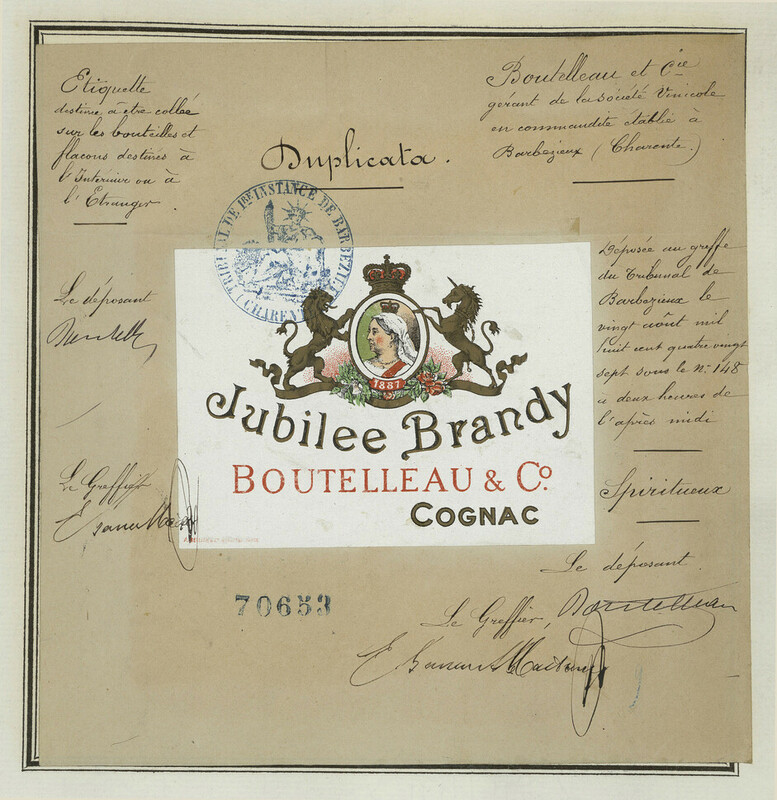 Etiquette
destinée à être collée
sur les bouteilles et
flacons destinés à
l'Intérieur ou à
l'Etranger.
Duplicata.
Boutelleau et Cie
gérant de la société Vinicole
en commandite établie à
Barbezieux (Charente.)
TRIBUNAL DE 1RE INSTANCE DE BARBEZIEUX
(CHARENTE)
Le déposant
Boutelleau
Le Greffier
Déposée au greffe
du Tribunal de
Barbezieux le
vingt août mil
huit cent quatre vingt
sept sous le No 148
à deux heures de
l'après midi
Spiritueux
1887
Jubilee Brandy
BOUTELLEAU & Co.
COGNAC
70653
Le déposant
Boutelleau
Le Greffier,